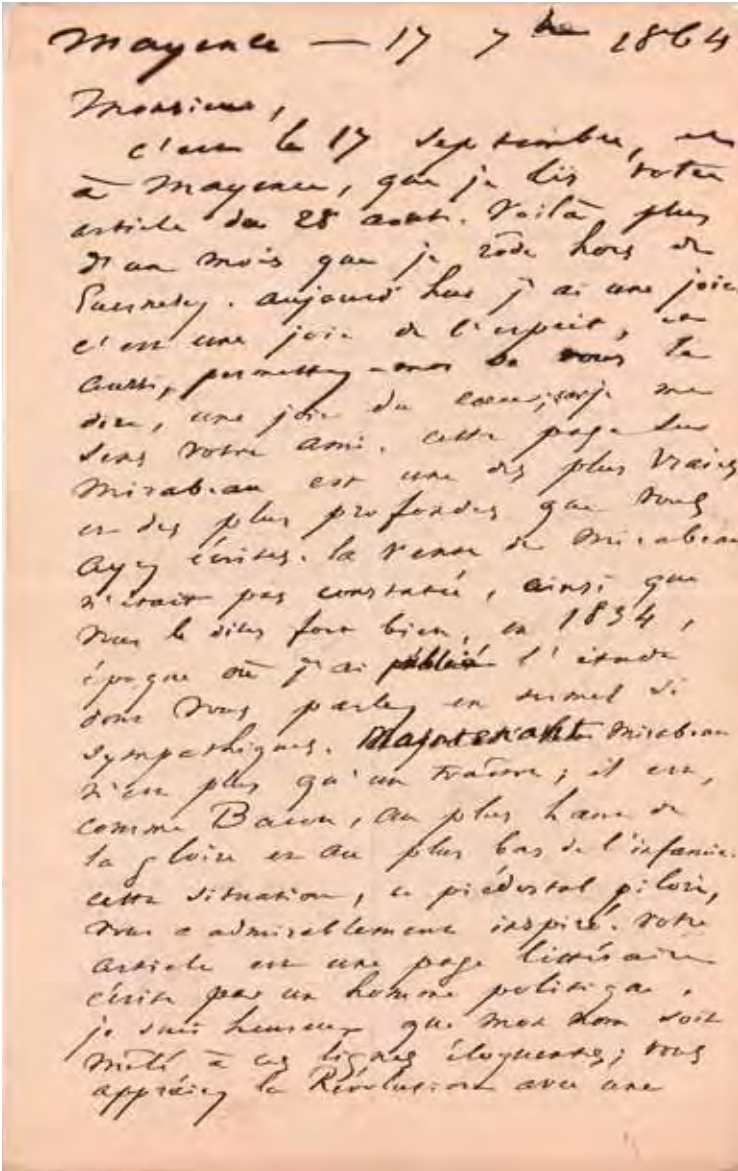 Mayence — 17 7bre 1864
Monsieur,
c'est le 17 septembre, et
à Mayence, que je lis votre
article du 28 août. Voilà plus
d'un mois que je rôde hors de
Guernesey. aujourd'hui j'ai une joie
c'est une joie de l'esprit, et
aussi, permettez-moi de vous le
dire, une joie du cœur, car je me
sens votre ami. cette page sur
Mirabeau est une des plus vraies
et des plus profondes que vous
ayez écrites. la vente de Mirabeau
n'était pas constatée, ainsi que
vous le dites fort bien, en 1834,
époque où j'ai publié l'étude
dont vous parlez en termes si
sympathiques. Maintenant Mirabeau
n'est plus qu'un traître; il est,
comme Bacon, au plus haut de
la gloire et au plus bas de l'infamie.
cette situation, ce piédestal pilori,
vous a admirablement inspiré. votre
article est une page littéraire
écrite par un homme politique.
je suis heureux que mon nom soit
mêlé à ces lignes éloquentes; vous
appréciez la Révolution avec une